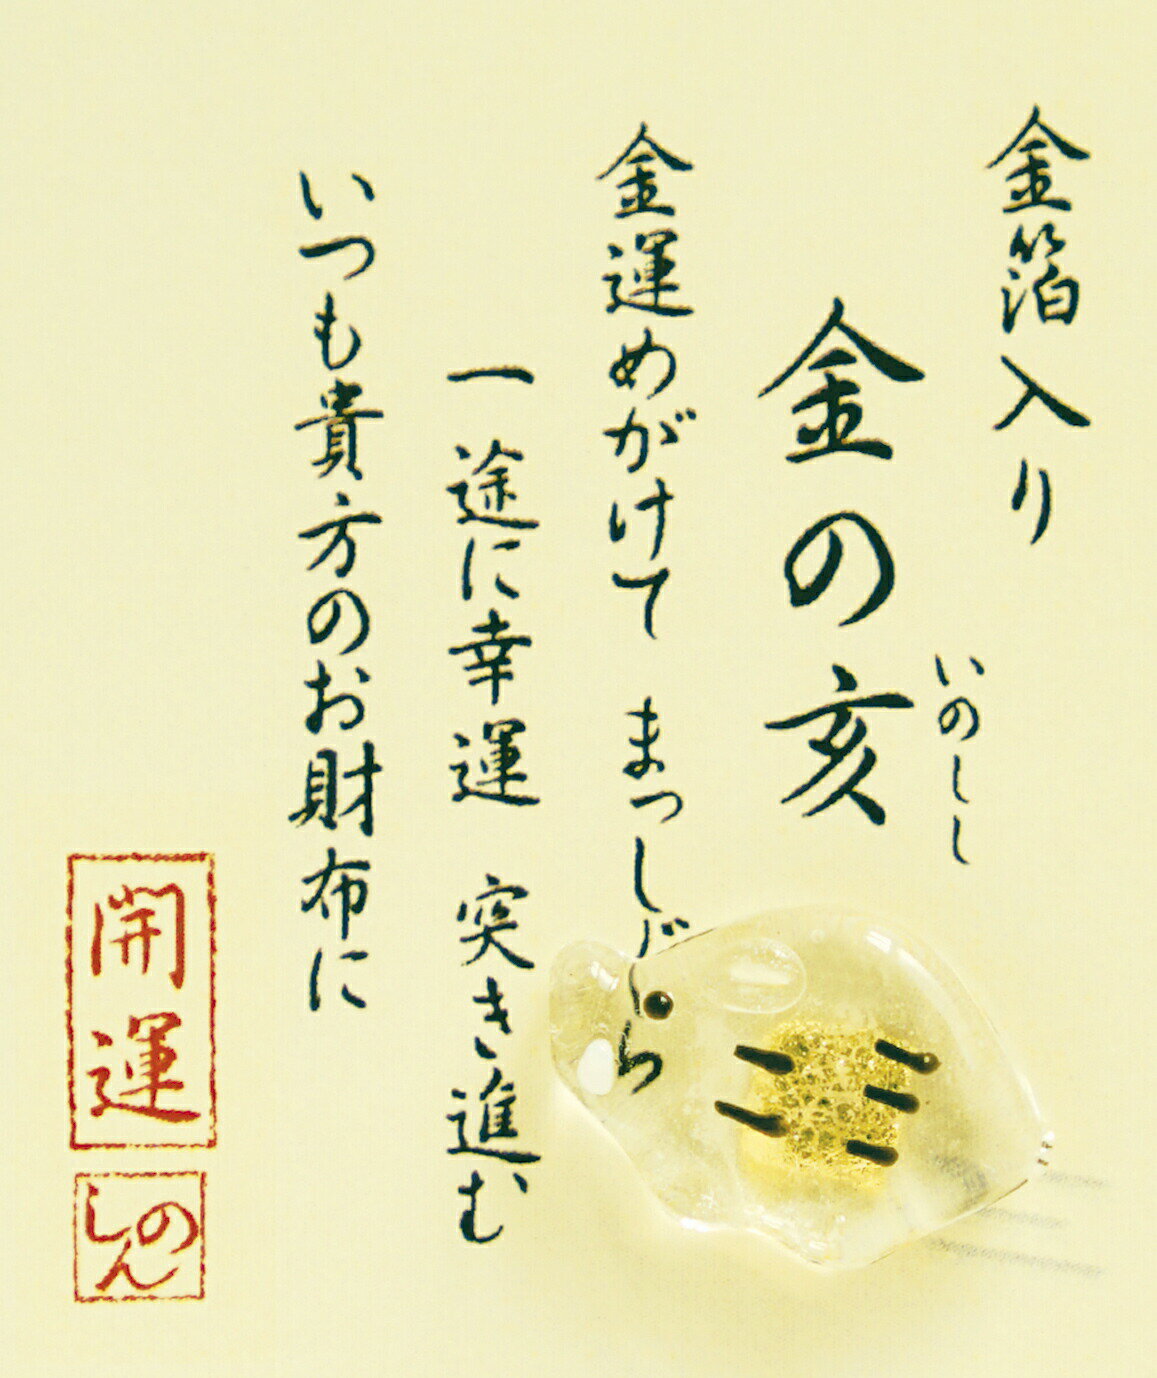 金箔入り
いのしし
金の亥
金運めがけて まっしぐら
一途に幸運 突き進む
いつも貴方のお財布に
開運
のしん